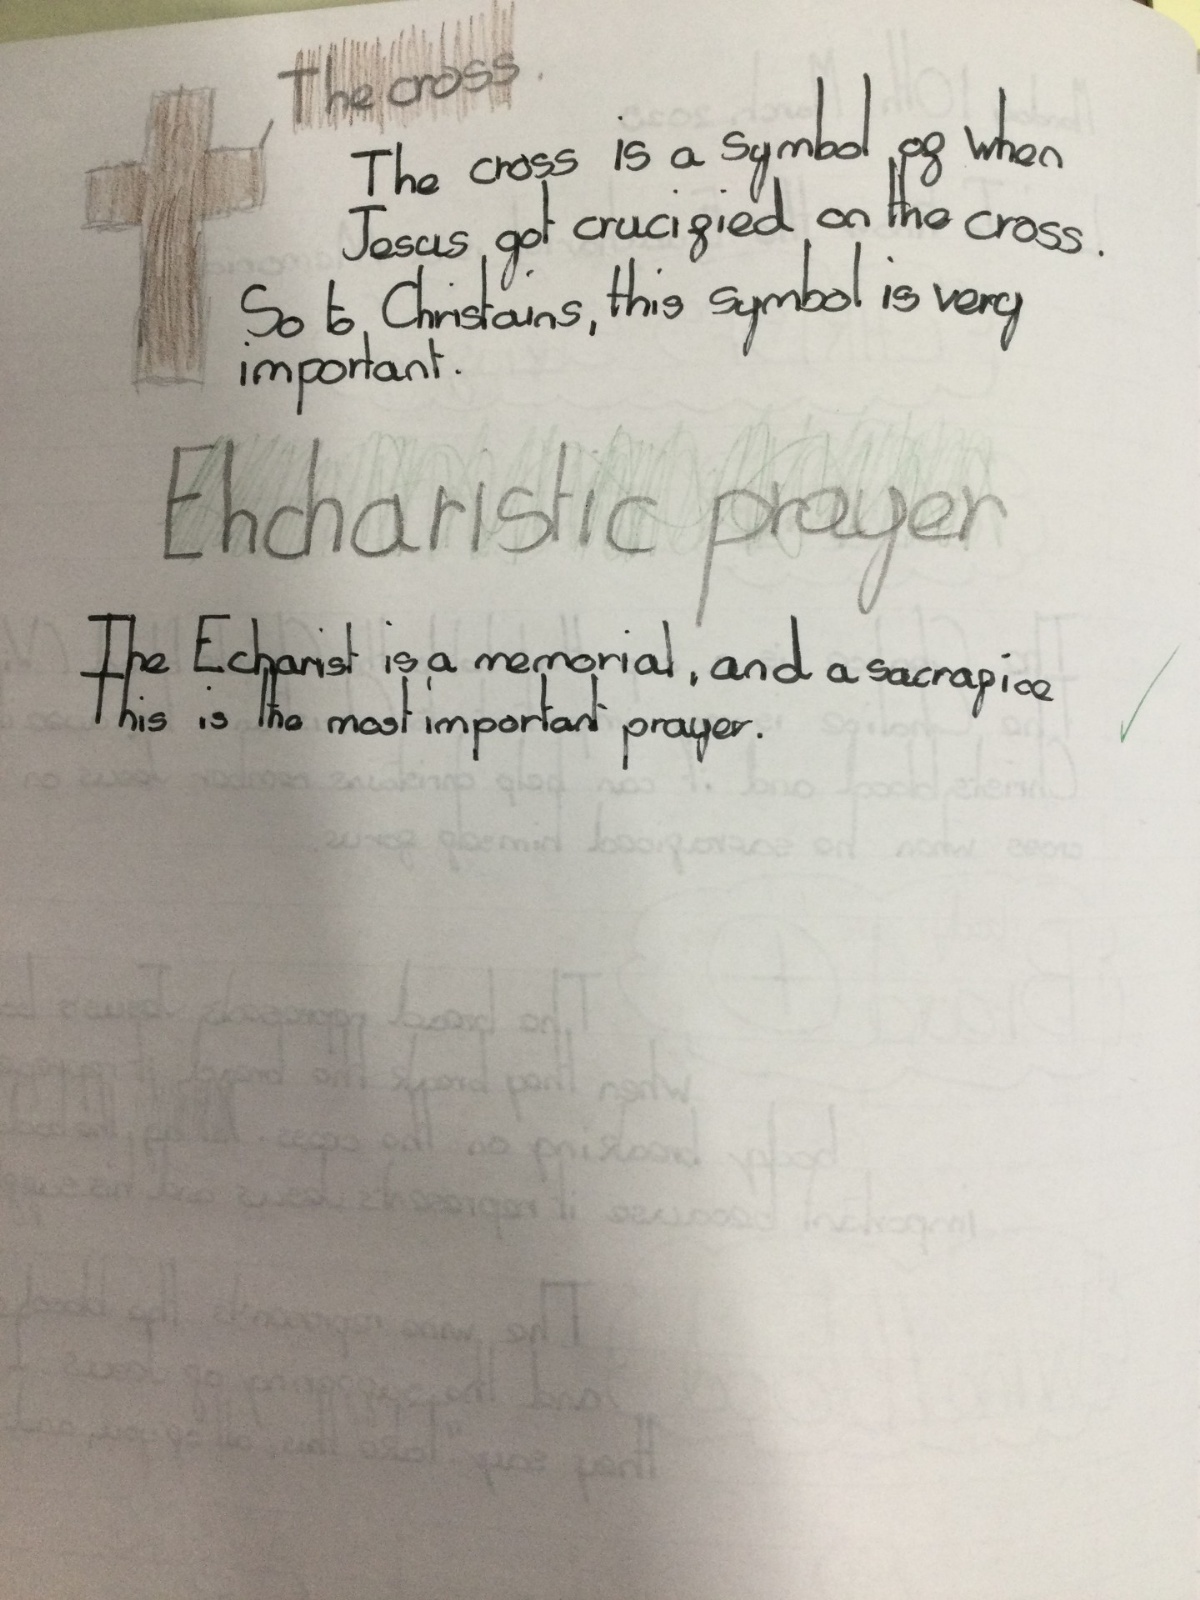 The cross.
The cross is a symbol of when
Jesus got crucified on the cross.
So to Christains, this symbol is very
important.
Ehcharistic prayer
The Echarist is a memorial, and a sacrafice
This is the most important prayer.